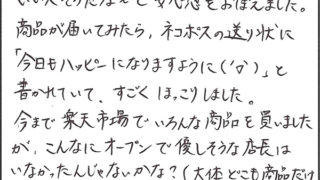 商品が届いてみたら、ネコポスの送り状に
「今日もハッピーになりますように('▽')」と
書かれていて、すごくほっこりしました。
今まで楽天市場でいろんな商品を買いました
が、こんなにオープンで優しそうな店長は
いなかったんじゃないかな?(大体どこも商品だけ